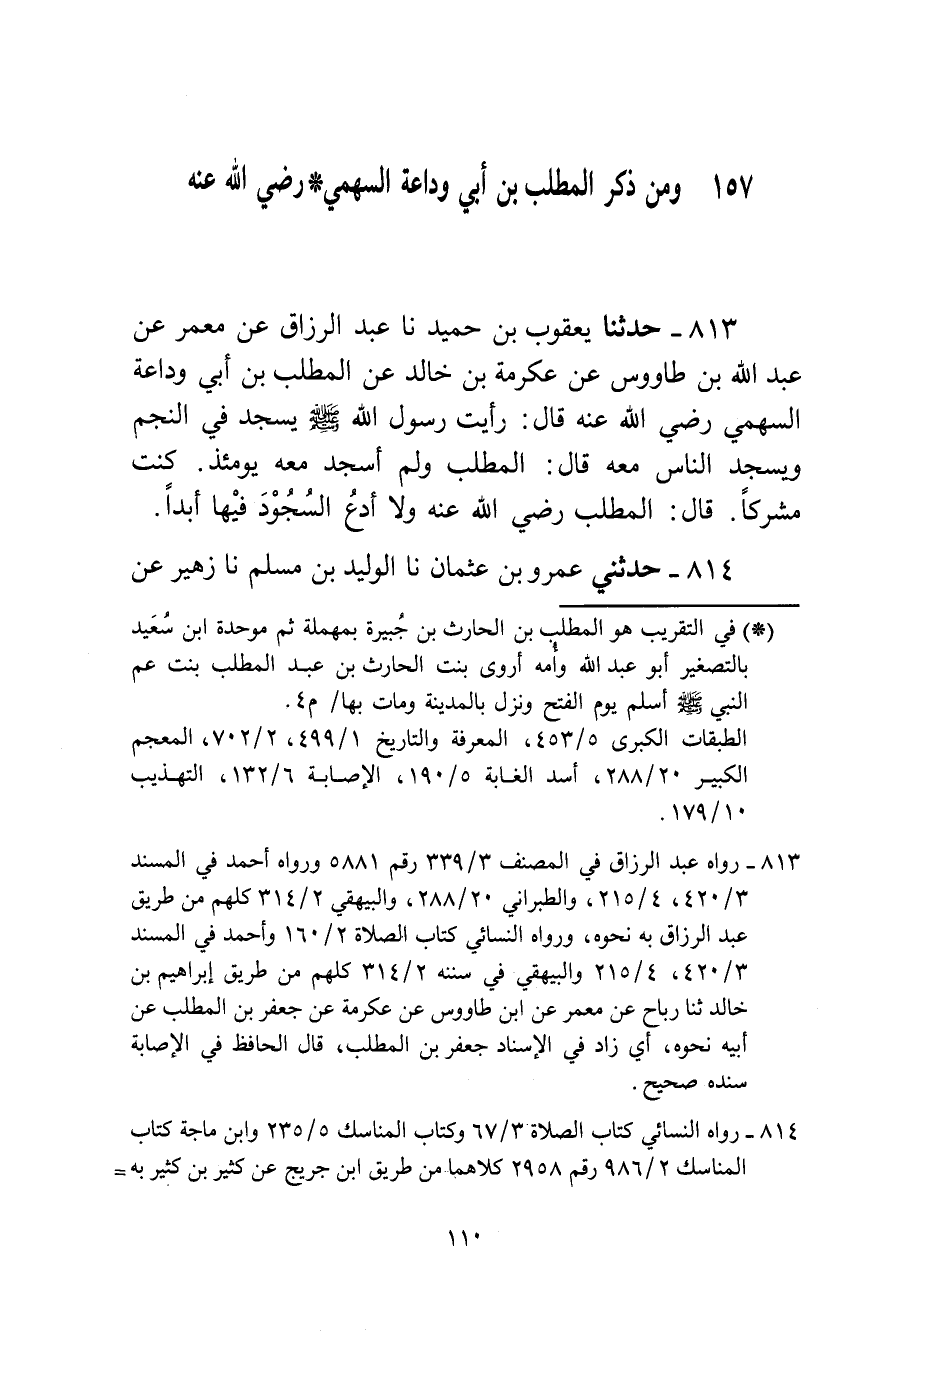 ١٥٧ ومن ذكر المطلب بن أبي وداعة السهمي* رضي الله عنه
٨١٣ ـ حدثنا يعقوب بن حميد نا عبد الرزاق عن معمر عن
عبد الله بن طاووس عن عكرمة بن خالد عن المطلب بن أبي وداعة
السهمي رضي الله عنه قال: رأيت رسول الله ﷺ يسجد في النجم
ويسجد الناس معه قال: المطلب ولم أسجد معه يومئذ. كنت
مشركاً. قال: المطلب رضي الله عنه ولا أدعُ السُجُوْدَ فيْها أبداً.
٨١٤ ـ حدثني عمرو بن عثمان نا الوليد بن مسلم نا زهير عن
(*) في التقريب هو المطلب بن الحارث بن جُبيرة بمهملة ثم موحدة ابن سُعَيد
بالتصغير أبو عبد الله وأمه أروى بنت الحارث بن عبد المطلب بنت عم
النبي ﷺ أسلم يوم الفتح ونزل بالمدينة ومات بها/ م٤.
الطبقات الكبرى ٤٥٣/٥، المعرفة والتاريخ ٤٩٩/١، ٧٠٢/٢، المعجم
الكبير ٢٨٨/٢٠، أسد الغابة ١٩٠/٥، الإصابة ١٣٢/٦، التهذيب
١٧٩/١٠.
٨١٣ ـ رواه عبد الرزاق في المصنف ٣٣٩/٣ رقم ٥٨٨١ ورواه أحمد في المسند
٤٢٠/٣، ٢١٥/٤، والطبراني ٢٨٨/٢٠، والبيهقي ٣١٤/٢ كلهم من طريق
عبد الرزاق به نحوه، ورواه النسائي كتاب الصلاة ١٦٠/٢ وأحمد في المسند
٤٢٠/٣، ٢١٥/٤ والبيهقي في سننه ٣١٤/٢ كلهم من طريق إبراهيم بن
خالد ثنا رباح عن معمر عن ابن طاووس عن عكرمة عن جعفر بن المطلب عن
أبيه نحوه، أي زاد في الإسناد جعفر بن المطلب، قال الحافظ في الإصابة
سنده صحيح.
٨١٤ ـ رواه النسائي كتاب الصلاة ٦٧/٣ وكتاب المناسك ٢٣٥/٥ وابن ماجة كتاب
المناسك ٩٨٦/٢ رقم ٢٩٥٨ كلاهما من طريق ابن جريج عن كثير بن كثير به =
١١٠